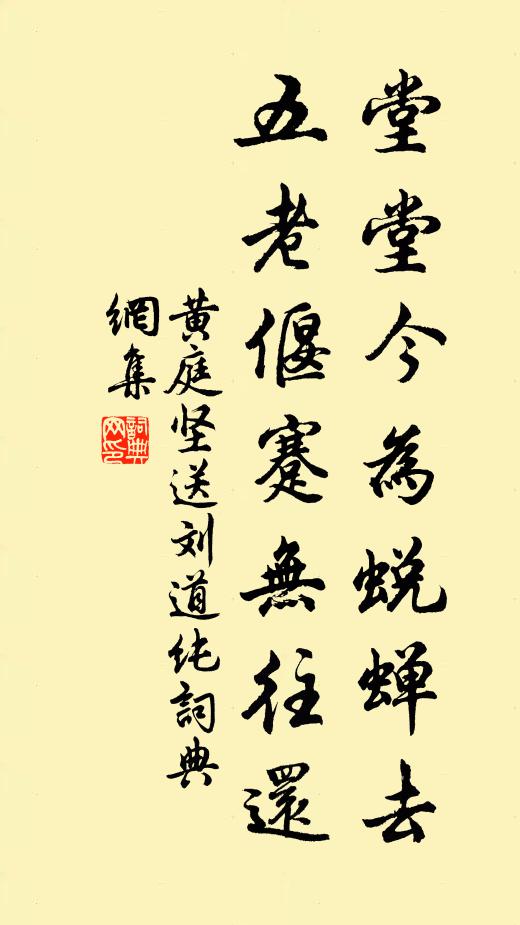 堂堂今為蜕蝉去
五老偃蹇無往還
黄庭坚送刘道纯詞典
網集
詞典
网印